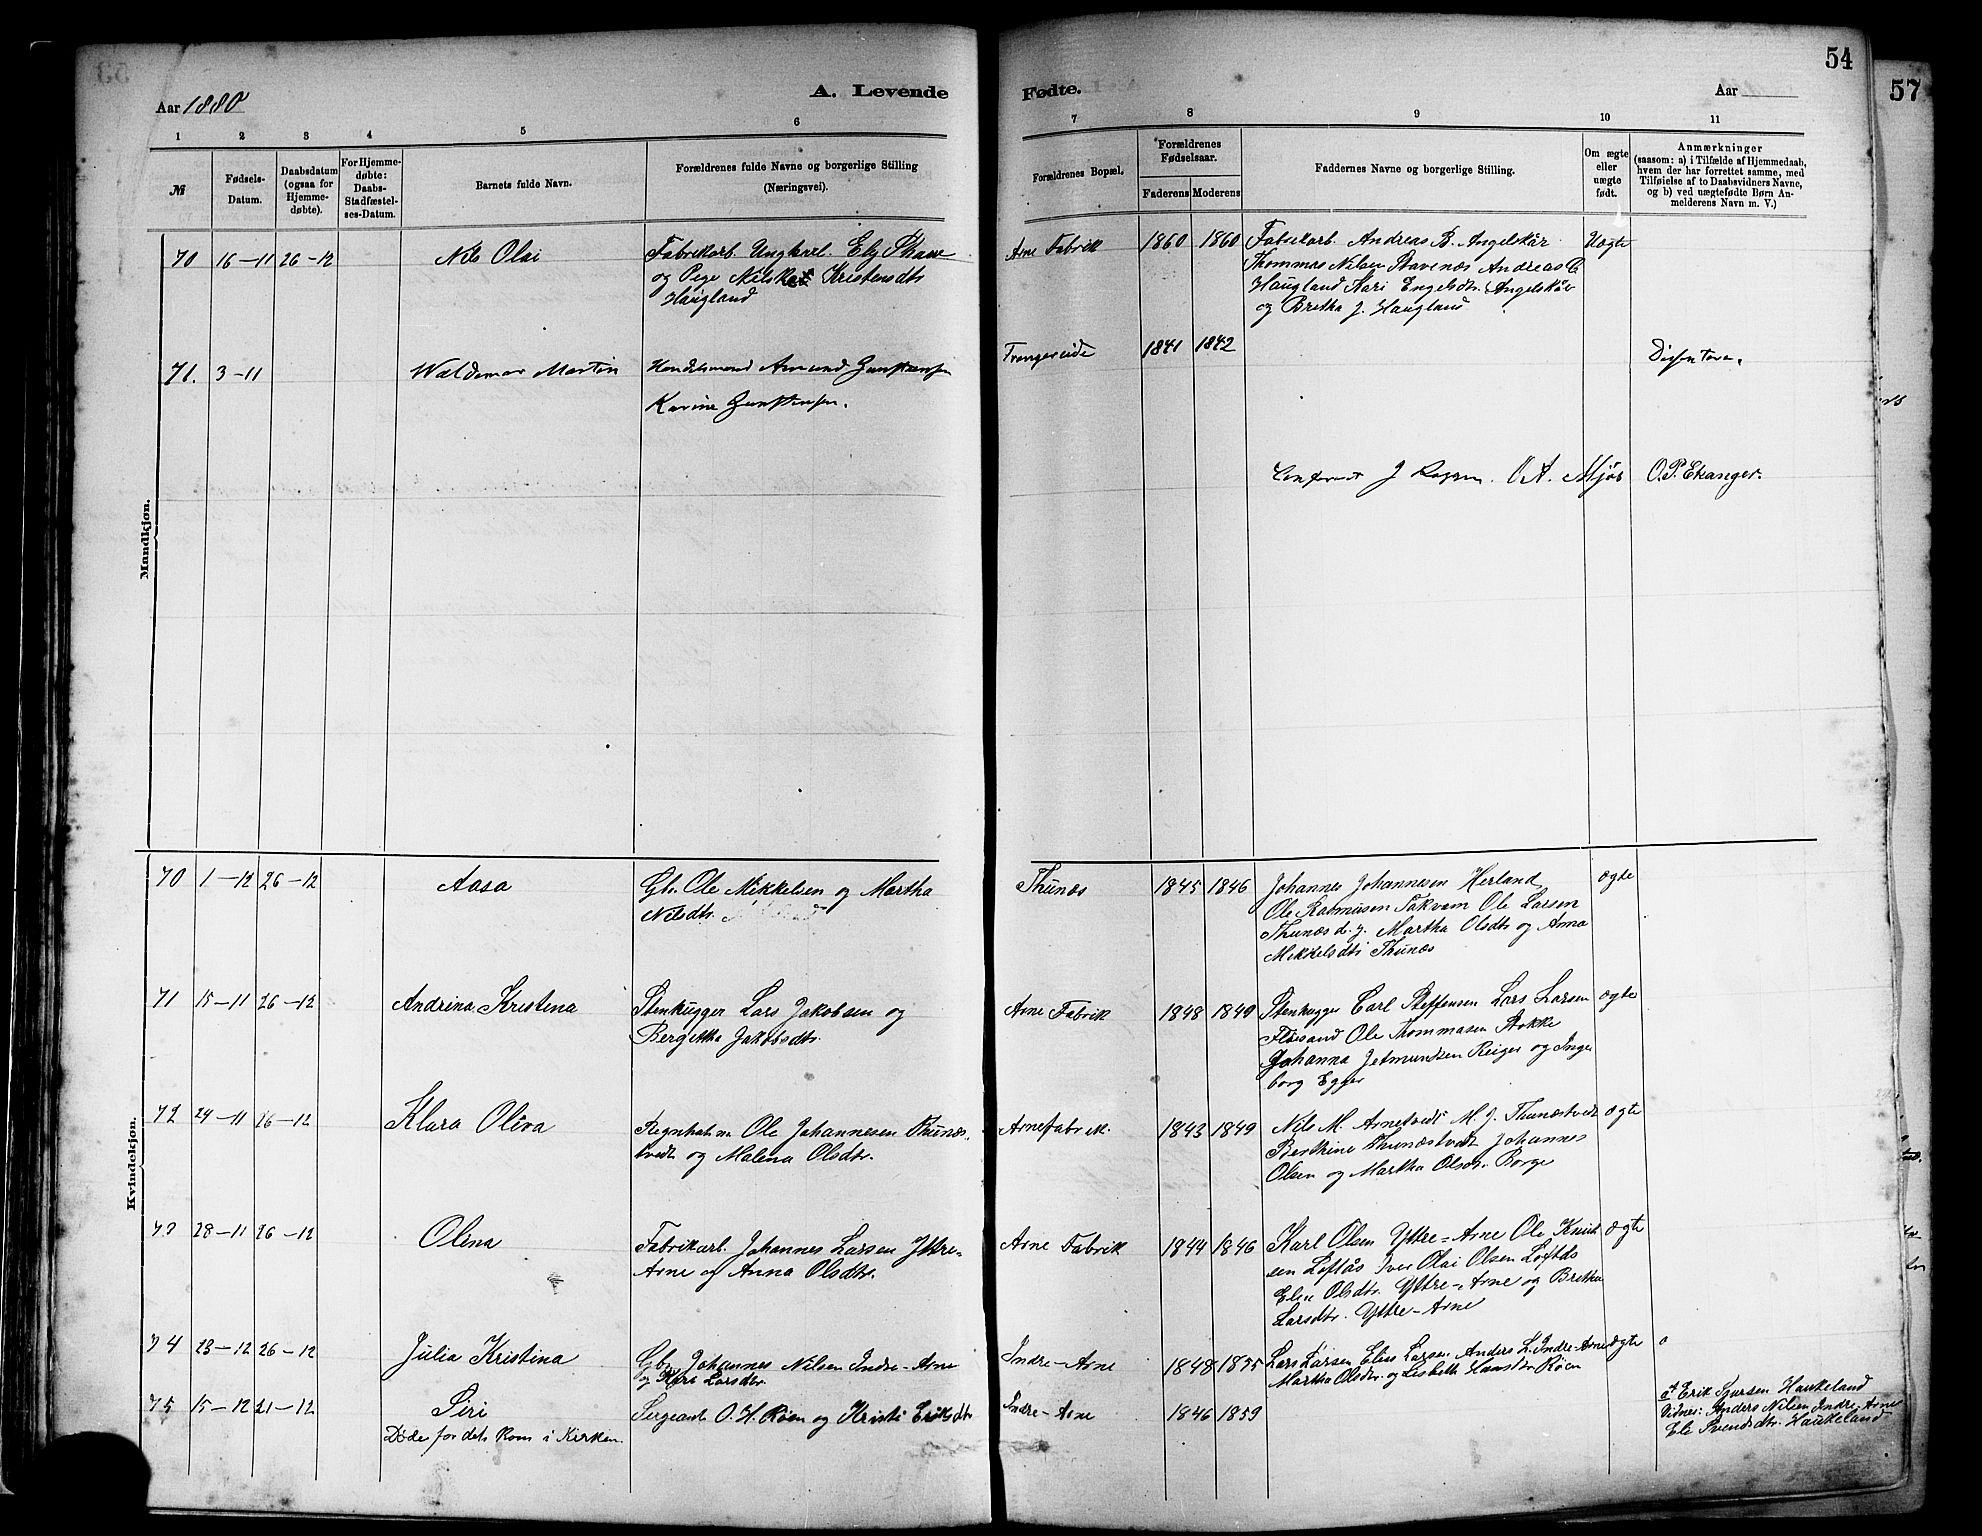 54
57
Aar 1880
A. Levende
Fødte.
Aar
1 2 3 4 5 6 7 8 9 10 11
№
Fødsels-
Datum.
Daabsdatum
(ogsaa for
Hjemme-
døbte).
For Hjemme-
døbte:
Daabs-
Stadfæstel-
ses-Datum.
Barnets fulde Navn.
Forældrenes fulde Navne og borgerlige Stilling
(Næringsvei).
Forældrenes Bopæl.
Forældrenes
Fødselsaar.
Faderens Moderens
Faddernes Navne og borgerlige Stilling.
Om ægte
eller
uægte
født.
Anmærkninger
(saasom: a) i Tilfælde af Hjemmedaab,
hvem der har forrettet samme, med
Tilføielse af to Daabsvidners Navne,
og b) ved uægtefødte Børn An-
melderens Navn m. V.)
Mandkjøn.
70 16-11 26-12 Nils Olai
Fabrikarb. Ungkarl. Elj
og Pige Kristensdtr
Haugland
Arne Fabrik 1860 1860
Fabrikarb. Andreas B. Angelskår
Thommas Nilsen Stavenæs Andreas
Haugland Kari Engelsdtr. Angelskår
og Bretha J. Haugland
Uægte
71. 3-11 Waldemar Martin
Handelsmand Amund Gunstensen
Karine Gunstensen.
Trengereide 1841 1842
Dissentere.
Conferert J O. A. Mjøs O. P. Ekanger.
Kvindekjøn.
70 1-12 26-12 Aasa
Gbr. Ole Mikkelsen og Martha
Nilsdtr.
Thunæs 1845 1846
Johannes Johannesen Herland
Ole Rasmusen Takvam Ole Larsen
Thunæs d. y. Martha Olsdtr og Anna
Mikkelsdtr Thunæs
ægte
71 15-11 26-12 Andrina Kristina
Stenhugger Lars Jakobsen og
Bergitha Jakobsdtr.
Arne Fabrik 1848 1849
Stenhugger Carl Steffensen Lars Larsen
Fløisand Ole Thommasen Stokke
Johanna Jetmundsen Reiger og Inge
borg Egger
ægte
72 24-11 26-12 Klara Oliva
Regnholm Ole Johannesen Thunæs-
tvedt og Malena Olsdtr.
Arnefabrik. 1843 1849
Nils M. Arnetvedt M. J. Thunæstvedt
Berthine Thunæstvedt Johannes
Olsen og Martha Olsdtr. Borge
ægte
73 28-11 26-12 Olina
Fabrikarb. Johannes Larsen Yttre-
Arne og Anna Olsdtr.
Arne Fabrik 1844 1846
Karl Olsen Yttre-Arne Ole Knut
sen Løftås Iver Olai Olsen Løftås
Elen Olsdtr. Yttre-Arne og Bretha
Larsdtr. Yttre-Arne
ægte
74 23-12 26-12 Julia Kristina
Gbr. Johannes Nilsen Indre-Arne
og Kari Larsdtr.
Indre-Arne 1848 1855
Lars Larsen Elias Larsen Anders L. Indre-Arne
Martha Olsdtr. og Lisbeth Hansdtr. Røen
ægte
75 15-12 21-12 Siri
Døde før det kom i Kirken.
Sergeant O. H. Røen og Kristi Eriksdtr
Indre-Arne 1846 1859
af Erik Haukeland
Vidner: Anders Nilsen Indre-Arne
Eli Svendsdtr. Haukeland